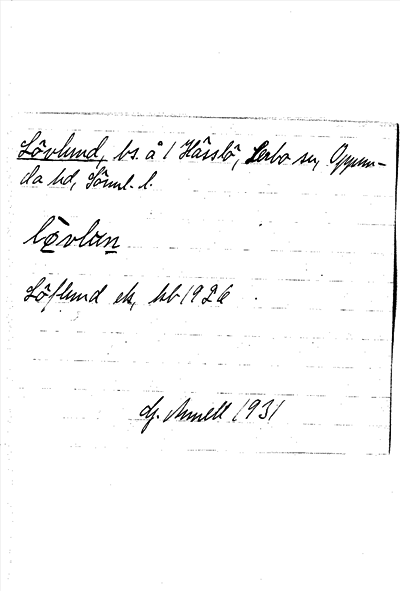 Lövlund, bs. å 1 Hässlö, Lerbo sn, Oppun-
da hd, Söml. l.
lo̱vlun̲
Löflund ek, kb 1926
Hj. Annell 1931